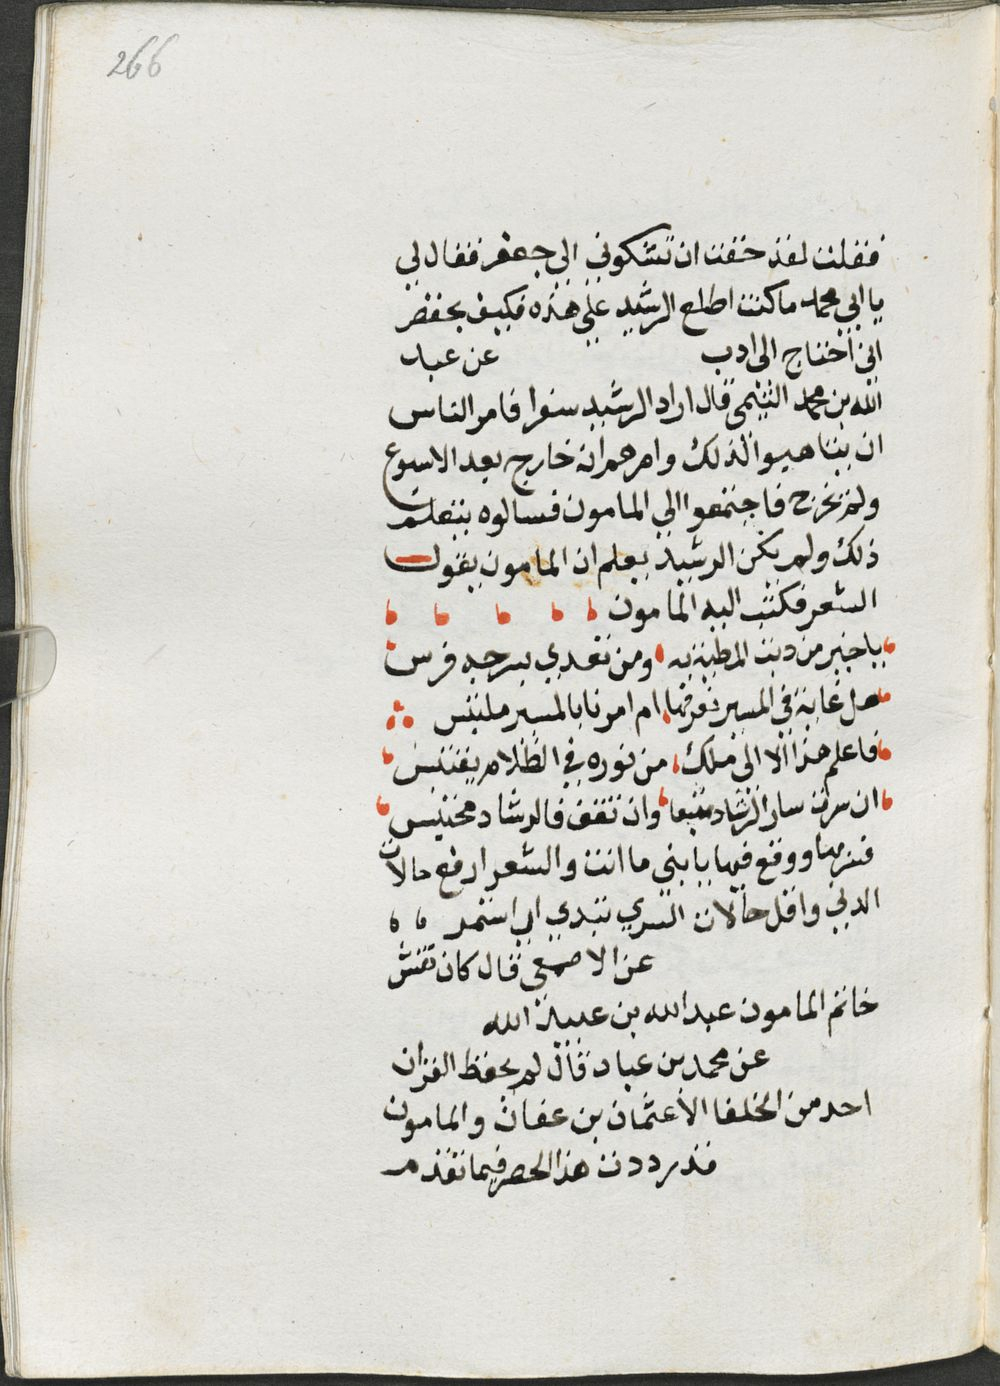 266
فقلت لقد خفت ان تشكوني الى جعفر فقال لي
يا ابي محمد ما كنت اطلع الرشيد على هذه فكيف بجعفر
اني احتاج الى ادب عن عبد
الله بن محمد التيمي قال اراد الرشيد سفرا فامر الناس
ان يتاهبوا لذلك وامرهم انه خارج بعد الاسبوع
ولم يخرج فاجتمعوا الى المامون فسالوه يستعلم
ذلك ولم يكن الرشيد يعلم ان المامون يقول
الشعر فكتب اليه المامون
يا خير من دبت المطية به ومن تقدي بسرجه فرس
هل غاية في المسير نعرفها ام امرنا بالمسير ملتبس
فاعلم هذا الا الى ملك من نوره في الظلام يقتبس
ان سرت سار الرشاد متبعا وان تقف فالرشاد محتبس
فقراها ووقع فيها يا بني ما انت والشعر ارفع حالات
الدني واقل حالات السري
عن الاصمعي قال كان نقش
خاتم المامون عبد الله بن عبد الله
عن محمد بن عباد قال لم يحفظ القران
احد من الخلفا الا عثمان بن عفان والمامون
قد رددت هذا الحصر فيما تقدم